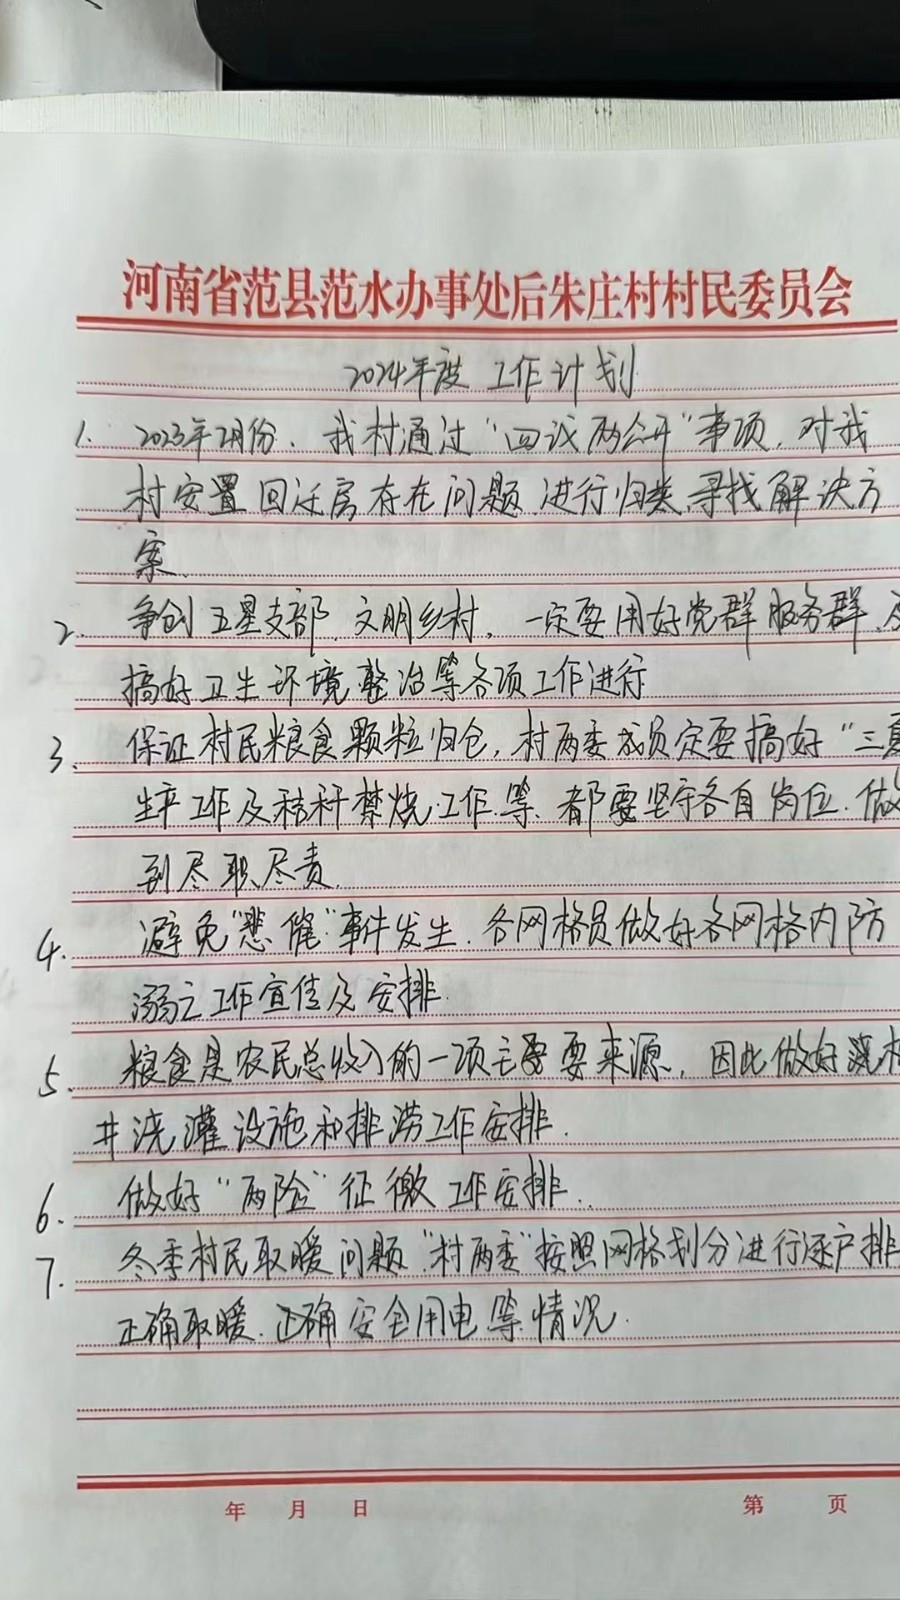 河南省范县范水办事处后朱庄村村民委员会
2024年度 工作计划
1. 2023年2月份. 我村通过"四议两公开"事项. 对我
村安置回迁房存在问题.进行归类.寻找解决方
案.
2. 争创五星支部.文明乡村. 一定要用好党群服务群.及
搞好卫生环境整治等各项工作进行
3. 保证村民粮食颗粒归仓, 村两委成员定要搞好"三夏
生产工作及秸秆禁烧工作.等.都要坚守各自岗位.做
到尽职尽责.
4. 避免"悲催"事件发生. 各网格员做好各网格内防
溺之工作宣传及安排.
5. 粮食是农民总收入的一项主要来源, 因此做好
井浇灌设施和排涝工作安排.
6. 做好"两险"征缴工作安排.
7. 冬季村民取暖问题"村两委"按照网格划分进行逐户排
正确取暖.正确安全用电等情况.
年 月 日
第 页